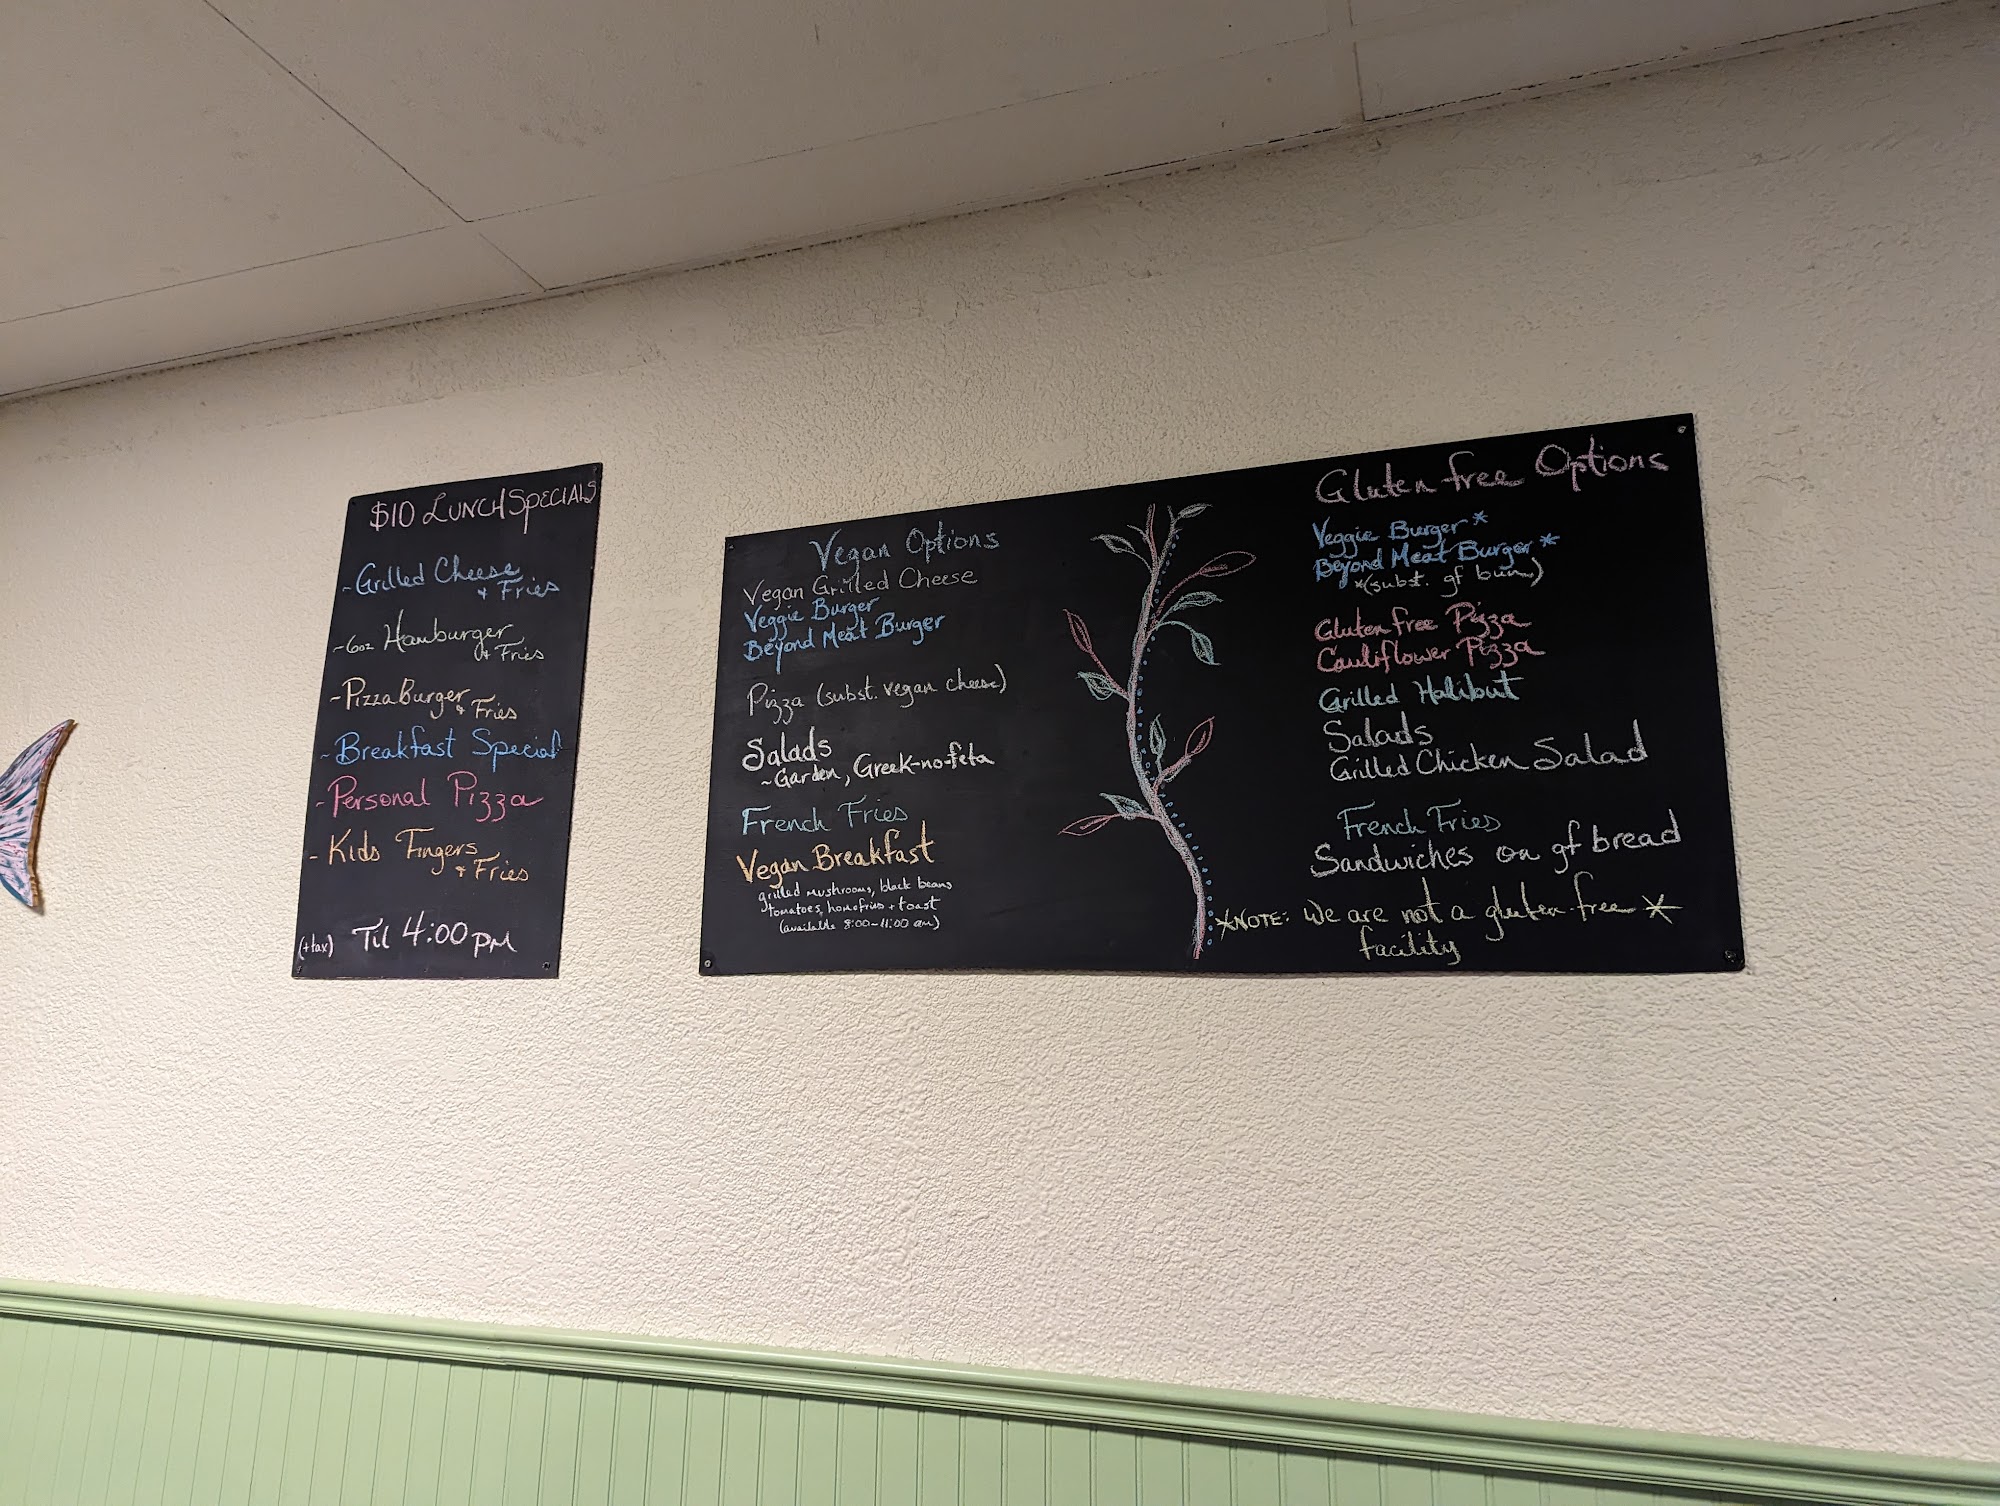 $10 LUNCH SPECIALS
- Grilled Cheese
+ Fries
- 6oz Hamburger
+ Fries
- Pizza Burger
+ Fries
- Breakfast Special
- Personal Pizza
- Kids Fingers
+ Fries
(+tax) Til 4:00 PM
Vegan Options
Vegan Grilled Cheese
Veggie Burger
Beyond Meat Burger
Pizza (subst. vegan cheese)
Salads
~ Garden, Greek-no-feta
French Fries
Vegan Breakfast
grilled mushrooms, black beans
tomatoes, homefries + toast
(available 8:00-11:00 am)
Gluten free Options
Veggie Burger *
Beyond Meat Burger *
*(subst. gf bun)
Gluten free Pizza
Cauliflower Pizza
Grilled Halibut
Salads
Grilled Chicken Salad
French Fries
Sandwiches on gf bread
*NOTE: We are not a gluten-free *
facility